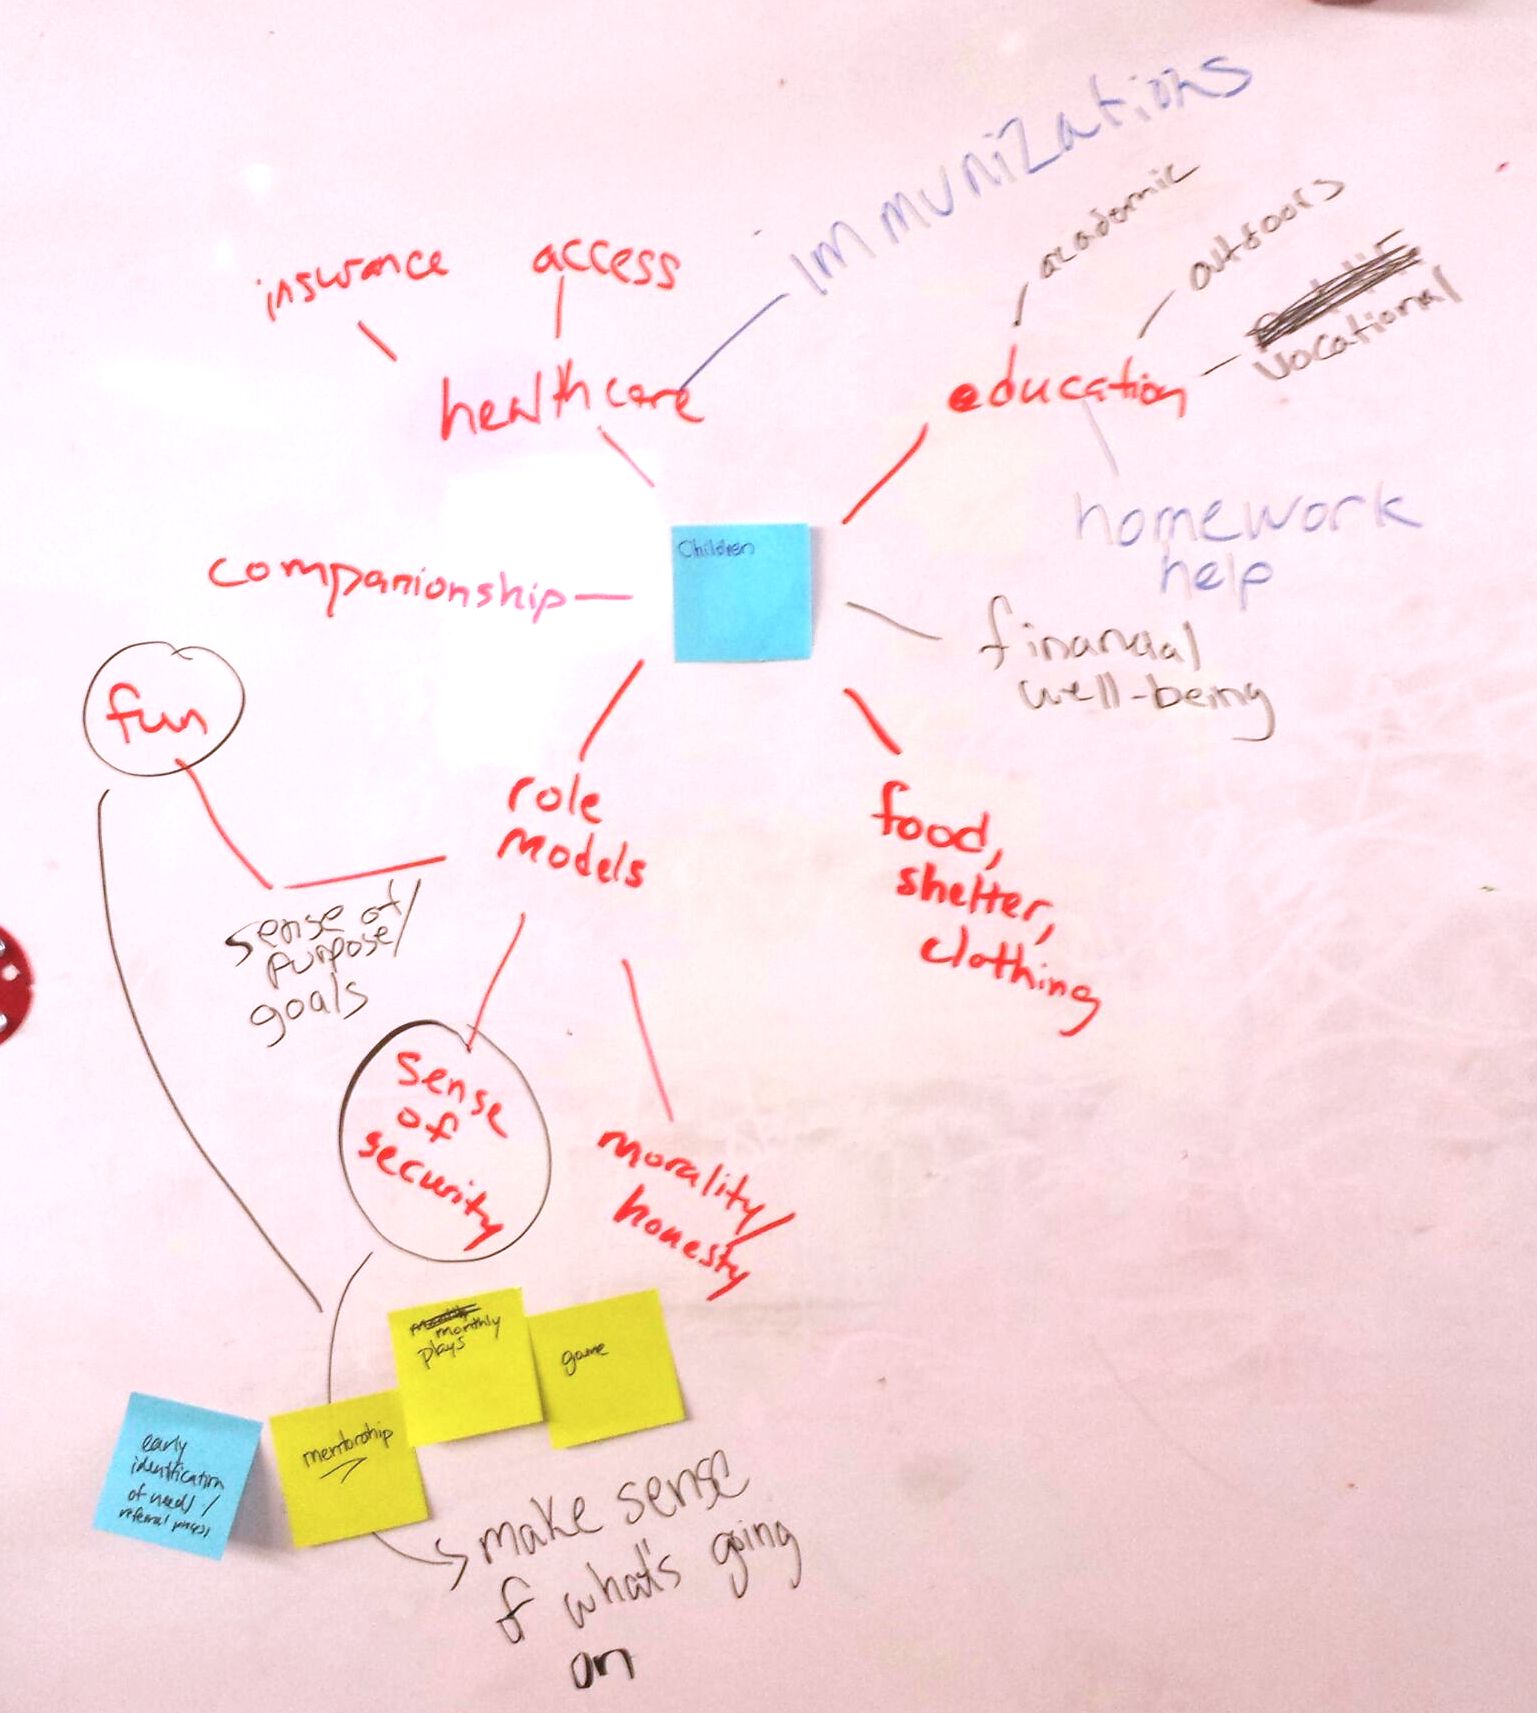 immunizations
academic
outdoors
vocational
insurance
access
healthcare
education
homework
help
Children
companionship
financial
well-being
fun
role
models
food,
shelter,
clothing
sense of/
purpose/
goals
sense
of
security
morality/
honesty
monthly
plays
game
mentorship
early
identification
of need/
referral process
make sense
of what's going
on